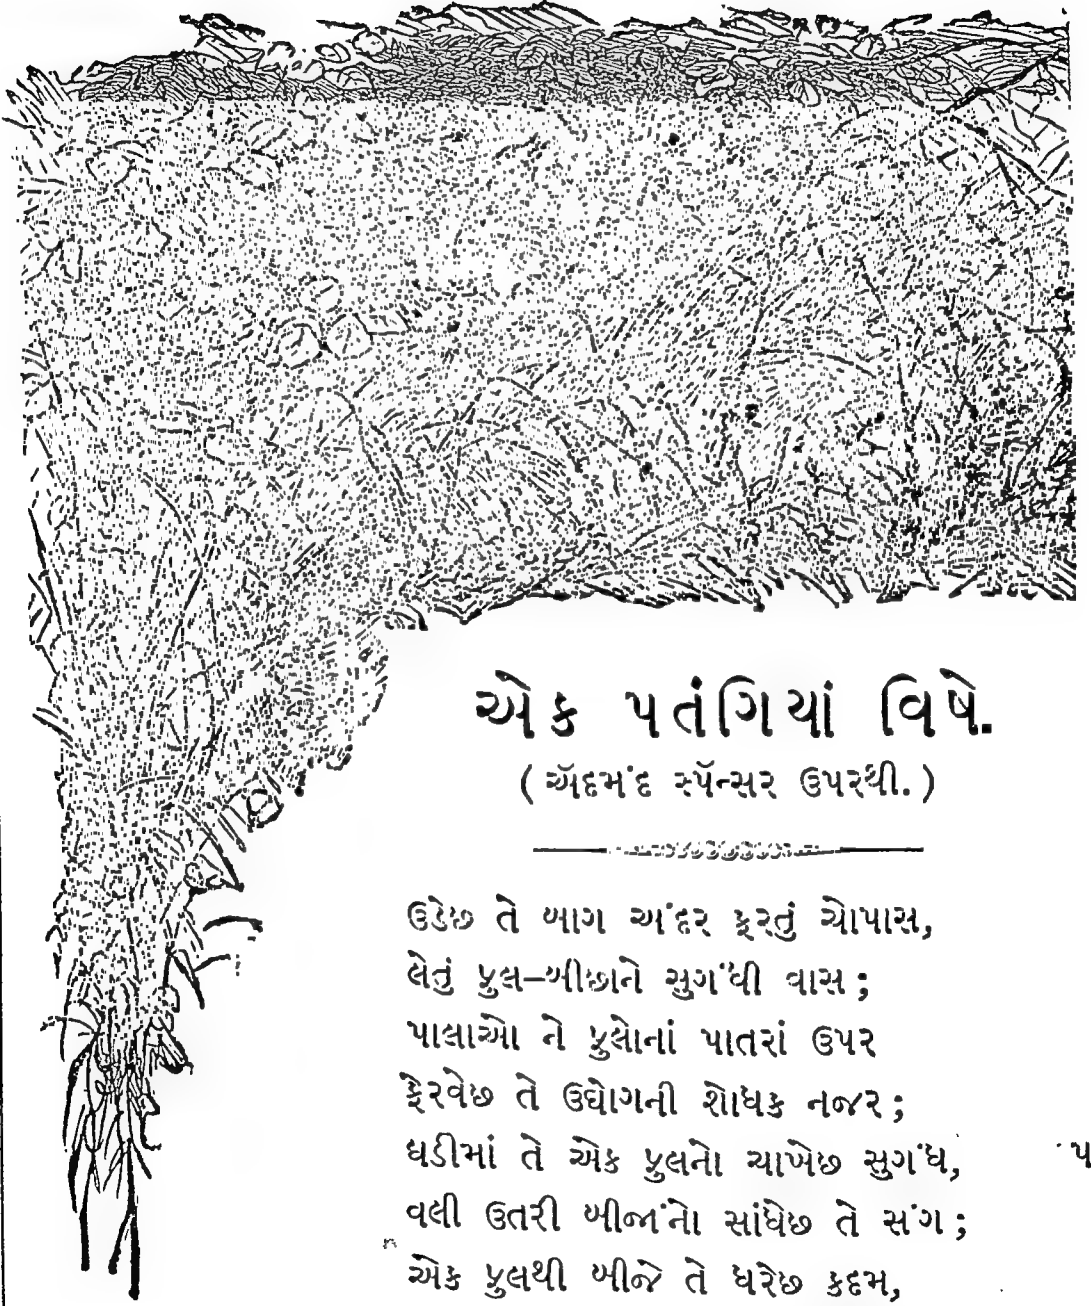 એક પતંગિયાં વિષે.
(ઍદમંદ સ્પૅન્સર ઉપરથી.)
ઉડેછ તે બાગ અંદર ફરતું ચોપાસ,
લેતું ફુલ–બીછાને સુગંધી વાસ;
પાલાઓ ને ફુલોનાં પાતરાં ઉપર
ફેરવેછ તે ઉદ્યોગની શોધક નજર;
ઘડીમાં તે એક ફુલનો ચાખેછ સુગંધ,
વલી ઉતરી બીજાંનો સાંધેછ તે સંગ;
એક ફુલથી બીજે તે ધરેછ કદમ,